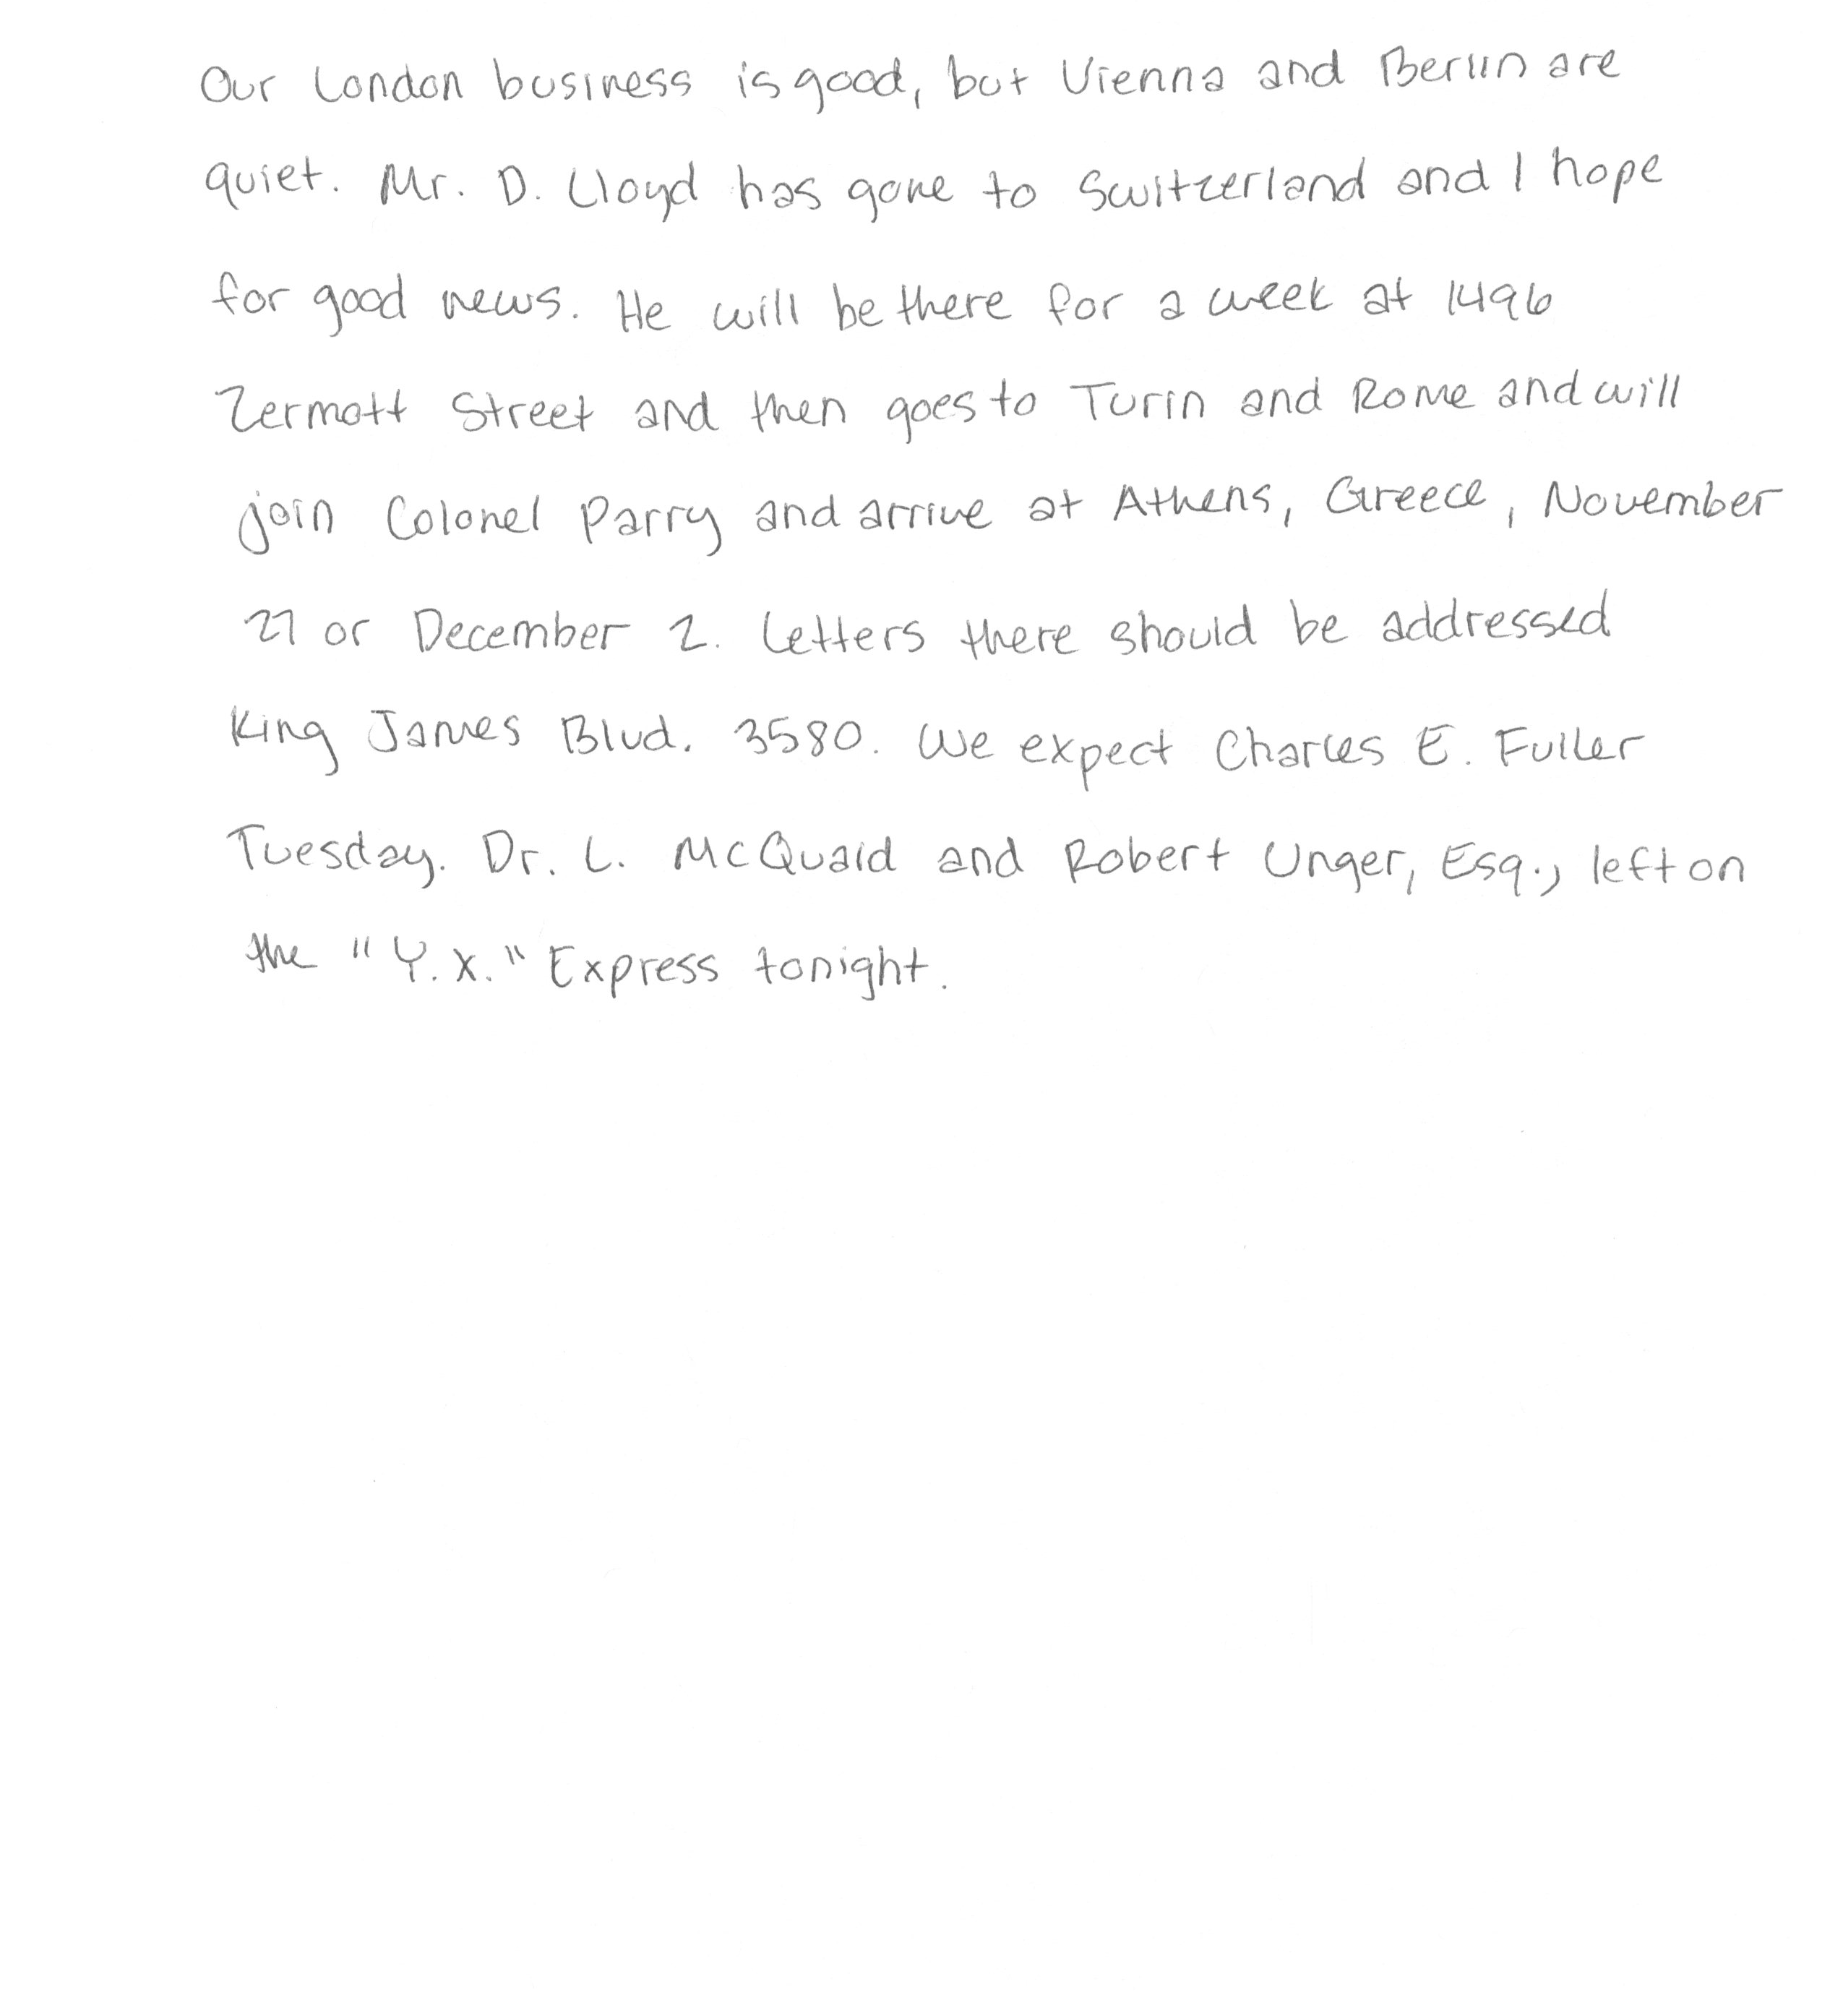 Our London business is good, but Vienna and Berlin are
quiet. Mr. D. Lloyd has gone to Switzerland and I hope
for good news. He will be there for a week at 1496
Zermott Street and then goes to Turin and Rome and will
join Colonel Parry and arrive at Athens, Greece, November
27 or December 2. Letters there should be addressed
King James Blvd. 3580. We expect Charles E. Fuller
Tuesday. Dr. L. McQuaid and Robert Unger, Esq., left on
the "Y.X." Express tonight.